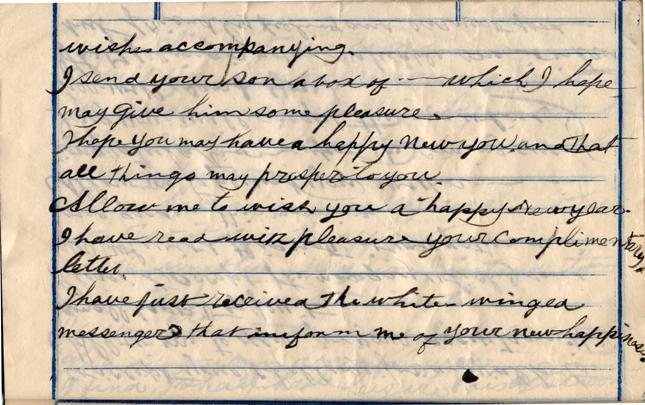 wishes accompanying.
I send your son a box of — which I hope
may give him some pleasure.
I hope you may have a happy New you, and that
all things may prosper to you
Allow me to wish you a happy New year.
I have read with pleasure your complimentary
letter.
I have just received the white-winged
messengers that inform me of your new happiness.